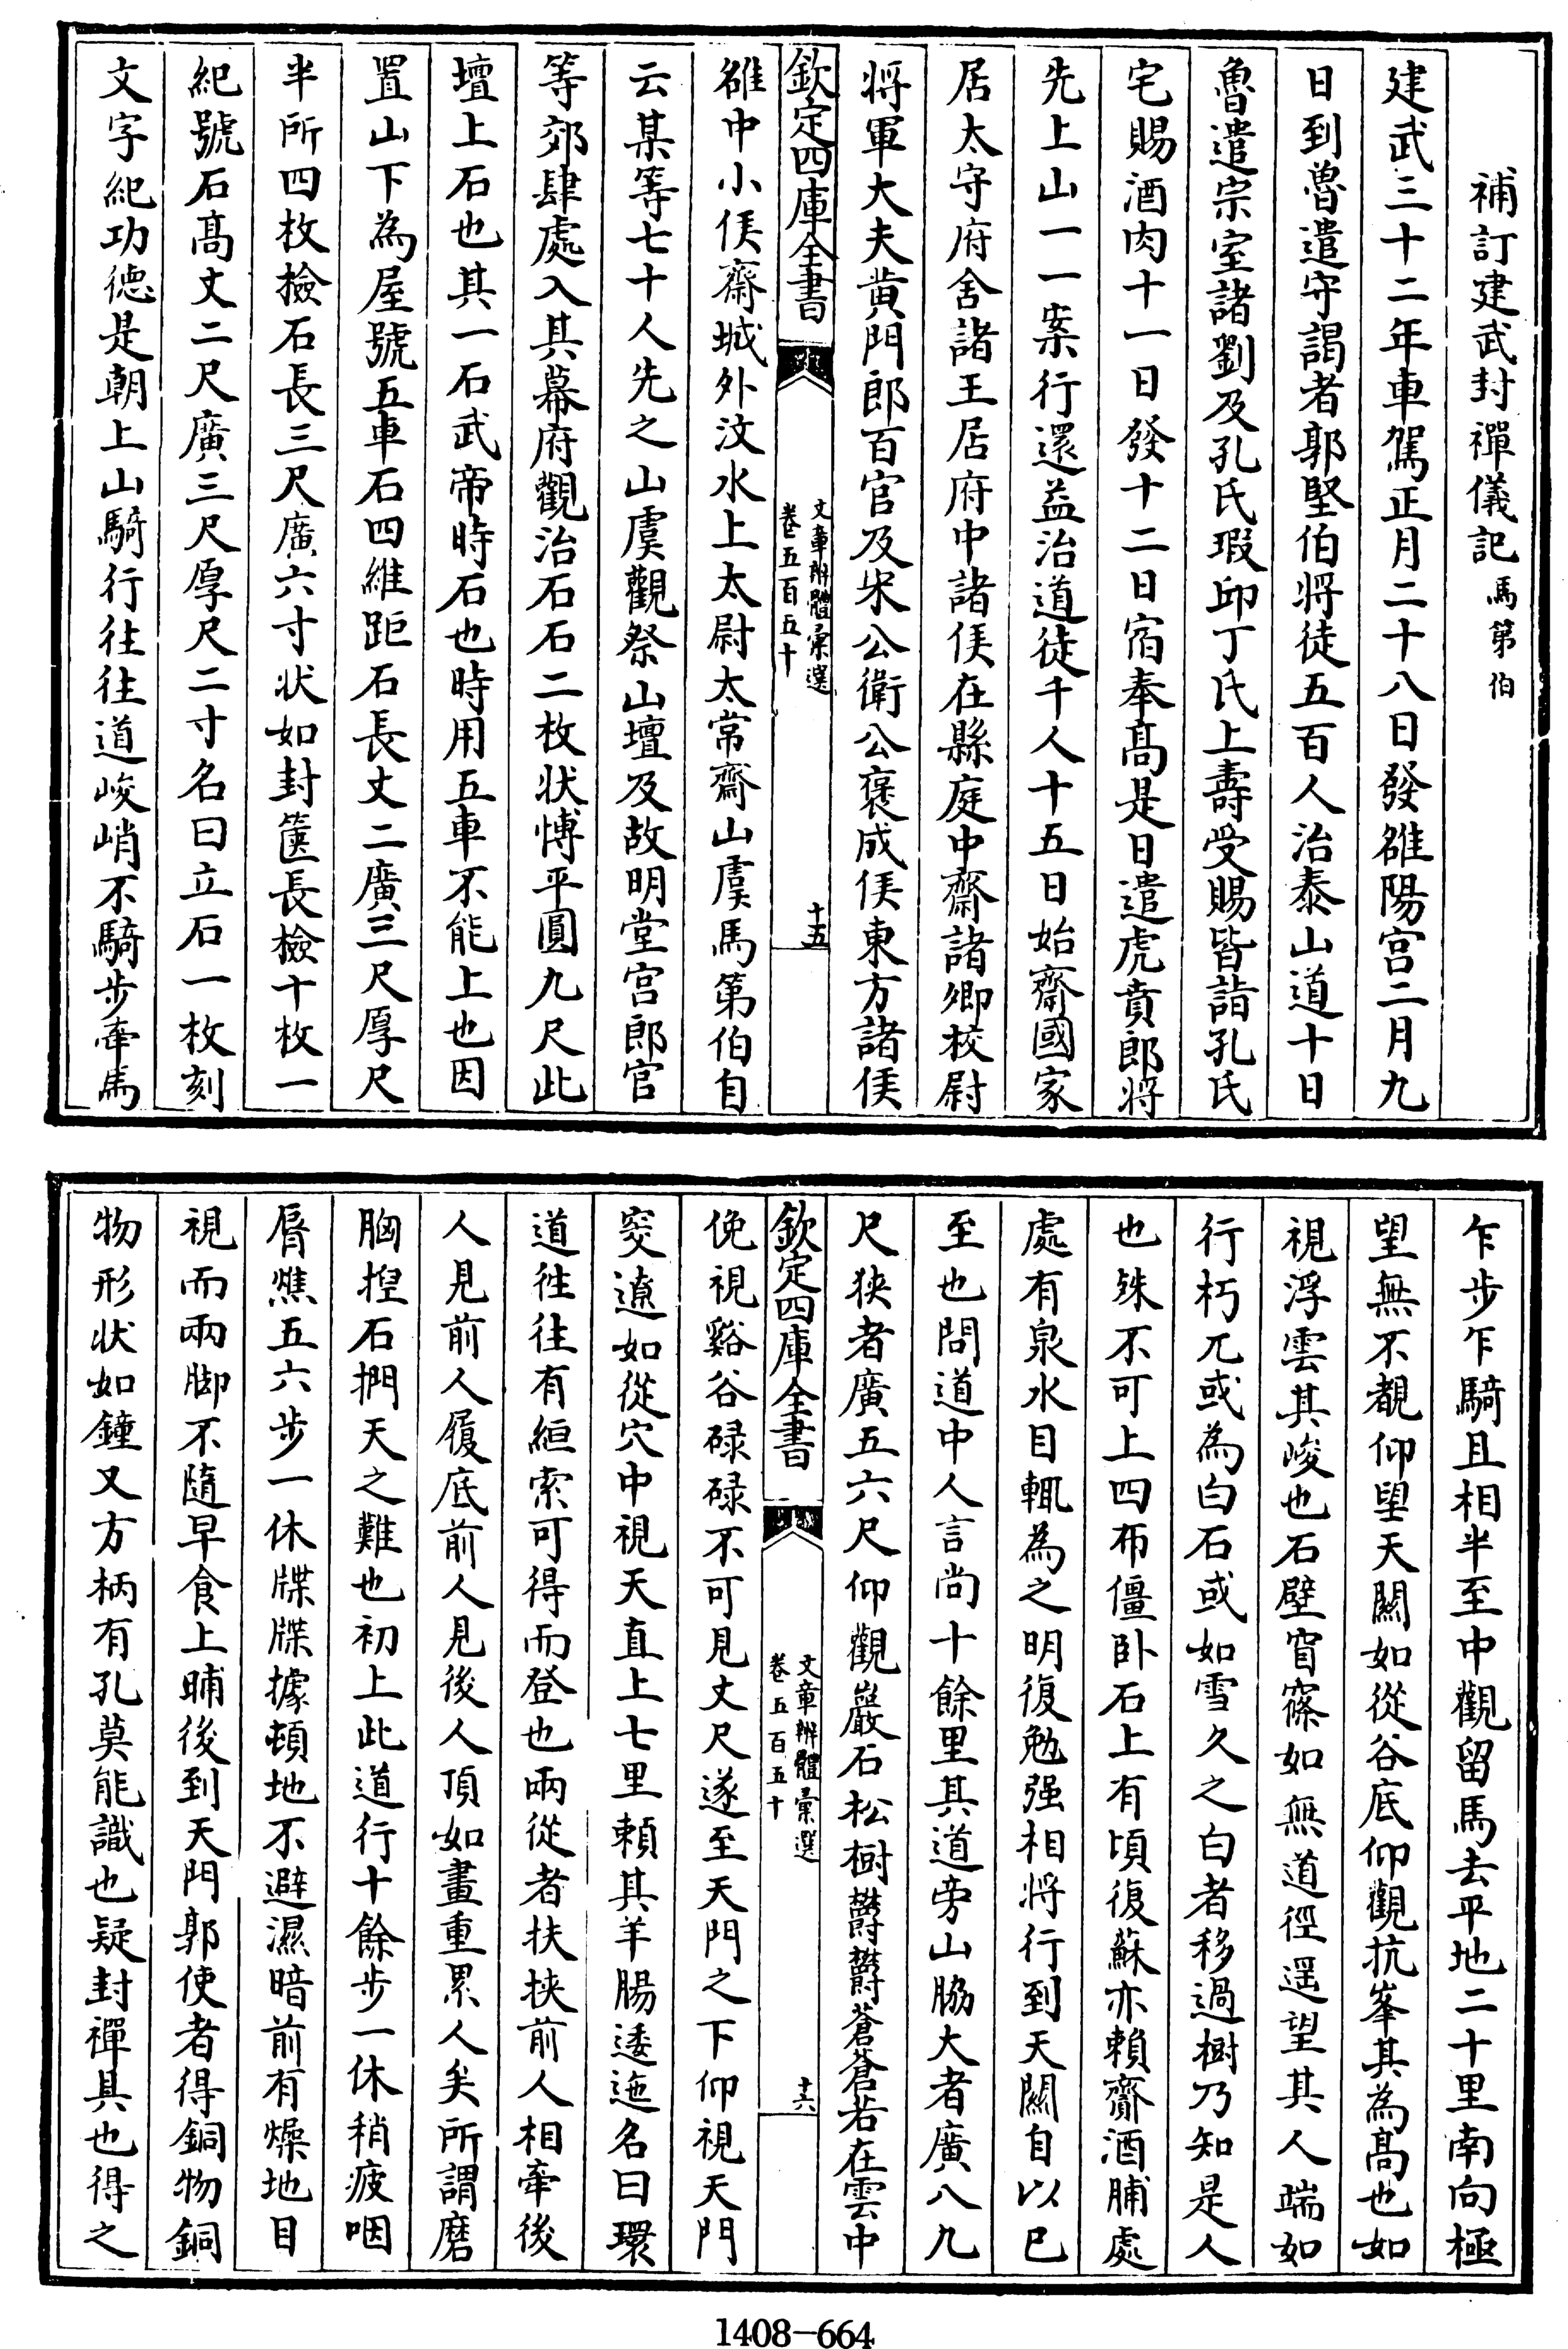 補訂建武封禪儀記馬第伯
建武三十二年車駕正月二十八日發雒陽宫二月九
日到魯遣守謁者郭堅伯將徒五百人治泰山道十日
魯遣宗室諸劉及孔氏瑕邱丁氏上壽受賜皆詣孔氏
宅賜酒肉十一日發十二日宿奉髙是日遣虎賁郎將
先上山一一案行還益治道徒千人十五日始齋國家
居太守府舍諸王居府中諸侯在縣庭中齋諸卿校尉
將軍大夫黄門郎百官及宋公衛公褒成侯東方諸侯
欽定四庫全書
文章辨體彙選
卷五百五十
十五
雒中小侯齋城外汶水上太尉太常齋山虞馬第伯自
云某等七十人先之山虞觀祭山壇及故明堂宫郎官
等郊肆處入其幕府觀治石石二枚狀博平圓九尺此
壇上石也其一石武帝時石也時用五車不能上也因
置山下為屋號五車石四維距石長丈二廣三尺厚尺
半所四枚檢石長三尺廣六寸狀如封篋長檢十枚一
紀號石髙丈二尺廣三尺厚尺二寸名曰立石一枚刻
文字紀功德是朝上山騎行往往道峻峭不騎步牽馬
乍步乍騎且相半至中觀留馬去平地二十里南向極
望無不覩仰望天闗如從谷底仰觀抗峯其為髙也如
視浮雲其峻也石壁窅窱如無道徑遥望其人端如
行朽兀或為白石或如雪久之白者移過樹乃知是人
也殊不可上四布僵卧石上有頃復蘇亦賴齎酒脯處
處有泉水目輒為之明復勉强相將行到天闗自以已
至也問道中人言尚十餘里其道旁山脇大者廣八九
尺狹者廣五六尺仰觀巖石松樹鬱鬱蒼蒼若在雲中
欽定四庫全書
文章辨體彙選
卷五百五十
十六
俛視谿谷碌碌不可見丈尺遂至天門之下仰視天門
窔遼如從穴中視天直上七里賴其羊腸逶迤名曰環
道徃往有絙索可得而登也兩從者扶挾前人相牽後
人見前人履底前人見後人頂如畫重累人矣所謂磨
胸揑石捫天之難也初上此道行十餘步一休稍疲咽
脣燋五六步一休牒牒據頓地不避濕暗前有燥地目
視而兩脚不隨早食上晡後到天門郭使者得銅物銅
物形狀如鐘又方柄有孔莫能識也疑封禪具也得之
1408-664